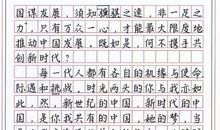 国谋发展，须知强疆之途，非一足之
力，只有万众一心，才能最大限度地
推动中国发展，既如是，何不携手共
创新时代？
每一代人都有各自的机缘与使命
际遇和挑战，时光向我的你与我亦如
此。然，新世纪的中国，新时代的中
国，是你我共有的中国，是